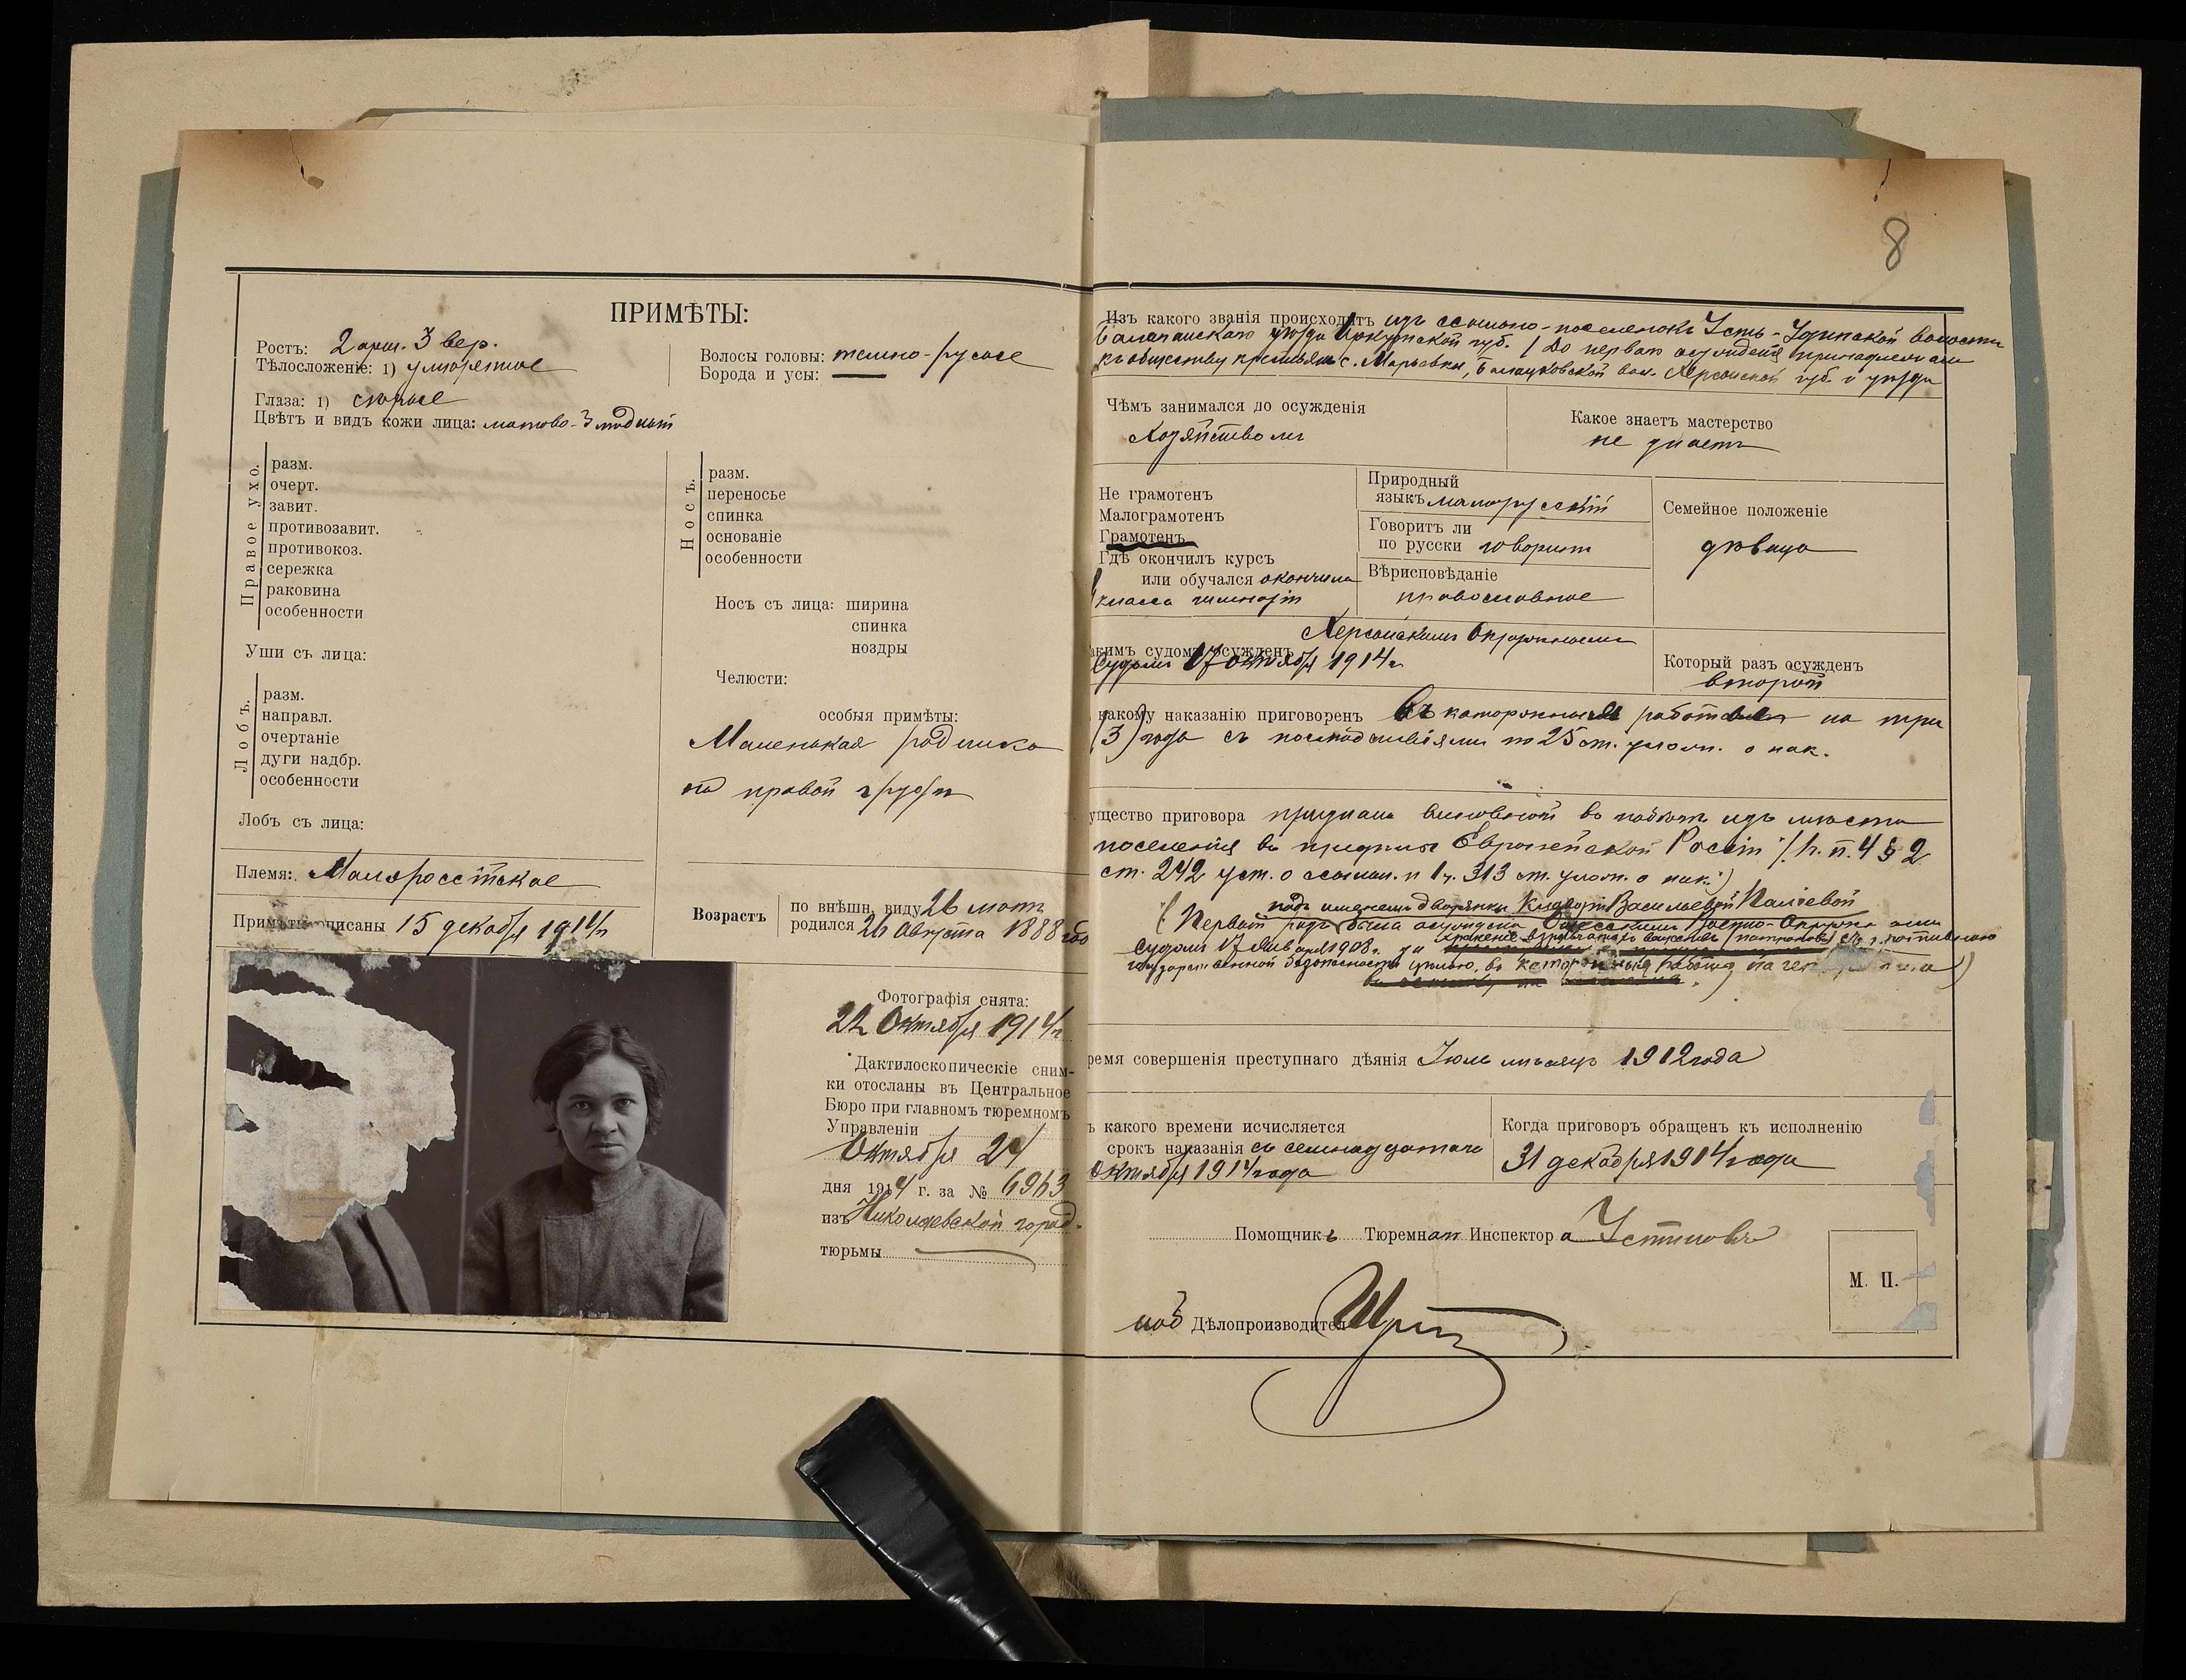 8
ПРИМѢТЫ:
Ростъ: 2 арш. 3 вер.
Тѣлосложеніе: 1) умѣренное
Волосы головы: темно-русые
Борода и усы: —
Глаза: 1) сѣрые
Цвѣтъ и видъ кожи лица: матово-
Правое ухо.
разм.
очерт.
завит.
противозавит.
противокоз.
сережка
раковина
особенности
Носъ.
разм.
переносье
спинка
основаніе
особенности
Носъ съ лица: ширина
спинка
ноздры
Уши съ лица:
Челюсти:
Лобъ.
разм.
направл.
очертаніе
дуги надбр.
особенности
особыя примѣты:
Маленькая родинка
на правой груди
Лобъ съ лица:
Племя: Малороссійское
Примѣты описаны 15 декабря 1914 г.
Возрастъ
по внѣшн. виду 26 лѣтъ
родился 26 Августа 1888 года
Фотографія снята:
22 Октября 1914 г.
Дактилоскопическіе сним-
ки отосланы въ Центральное
Бюро при главномъ тюремномъ
Управленіи
Октября 24
дня 1914 г. за № 6963
изъ Николаевской город.
тюрьмы
Изъ какого званія происходитъ изъ ссыльно-поселенокъ Усть-Удинской волости
Балаганскаго уѣзда Иркутской губ. (До перваго осужденія принадлежала
къ обществу крестьянъ с. Марьевки, Балацковской вол. Херсонской губ. и уѣзда
Чѣмъ занимался до осужденія
Хозяйствомъ
Какое знаетъ мастерство
не знаетъ
Не грамотенъ
Малограмотенъ
Грамотенъ
Гдѣ окончилъ курсъ
или обучался окончила
класса гимназіи
Природный
языкъ малорусскій
Говоритъ ли
по русски говоритъ
Вѣрисповѣданіе
православное
Семейное положеніе
дѣвица
Херсонскимъ Окружнымъ
акимъ судомъ осужденъ
Судомъ 17 октября 1914 г.
Который разъ осужденъ
второй
какому наказанію приговоренъ Въ каторжныя работы на три
(3) года съ послѣдствіями по 25 ст. улож. о нак.
ущество приговора признана виновной въ побѣгѣ изъ мѣста
поселенія въ предѣлы Европейской Россіи /. п. 4 § 2
ст. 242 уст. о ссыльн. и 1 ч. 313 ст. улож. о нак.)
подъ именемъ дворянки Клавдіи Васильевой Палѣевой
(Первый разъ была осуждена Одесскимъ Военно-Окружнымъ
судомъ 17 1908 г. за храненіе взрывчатыхъ веществъ (патроновъ) съ противною
государственной безопасности цѣлью, въ каторжныя работы на
ремя совершенія преступнаго дѣянія Іюль мѣсяцъ 1912 года
ъ какого времени исчисляется
срокъ наказанія съ семнадцатаго
Октября 1914 года
Когда приговоръ обращенъ къ исполненію
31 декабря 1914 года
Помощникъ Тюремнаго Инспектора Устиновъ
М. П.
Дѣлопроизводител